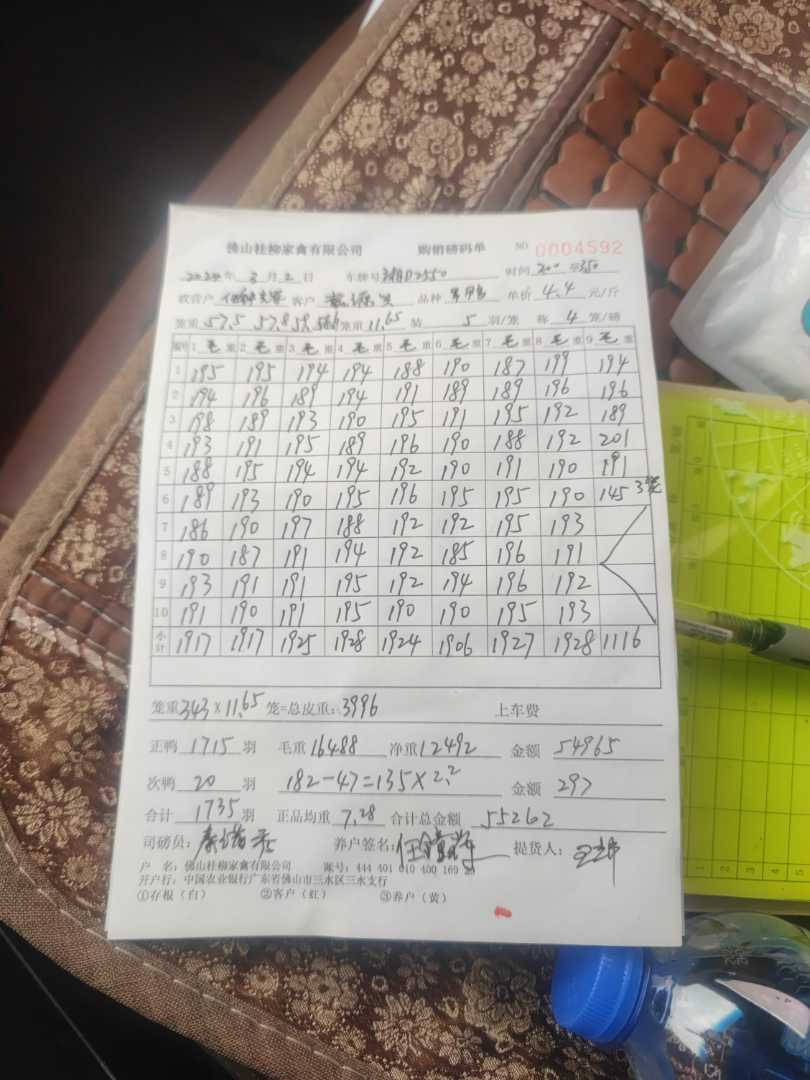 佛山桂柳家禽有限公司 购销磅码单 NO 0004592
2024年 3月 2日 车牌号 时间 200 至 350
收营户 客户 品种 单价 4.4 元/斤
笼重 57.5 57.8 58. 笼重 11.65 装 5 羽/笼 称 4 笼/磅
编号 1 毛 重 2 毛 重 3 毛 重 4 毛 重 5 毛 重 6 毛 重 7 毛 重 8 毛 重 9 毛 重
1 195 195 194 194 188 190 187 199 194
2 194 196 189 194 191 189 189 196 196
3 198 189 193 190 195 191 195 192 189
4 193 191 195 189 196 190 188 192 201
5 188 195 194 194 192 190 191 190 191
6 189 193 190 195 196 195 195 190 145 3笼
7 186 190 197 188 192 192 195 193
8 190 187 191 194 192 185 196 191
9 193 191 191 195 192 194 196 192
10 191 190 191 195 190 190 195 193
小计 1917 1917 1925 1928 1924 1906 1927 1928 1116
笼重 343 × 11.65 笼=总皮重: 3996 上车费
正鸭 1715 羽 毛重 16488 净重 12492 金额 54965
次鸭 20 羽 182-47=135×2.2 金额 297
合计 1735 羽 正品均重 7.28 合计总金额 55262
司磅员: 养户签名: 提货人:
户 名: 佛山桂柳家禽有限公司 账号: 444 401 010 400 169 20
开户行: 中国农业银行广东省佛山市三水区三水支行
①存根(白) ②客户(红) ③养户(黄)